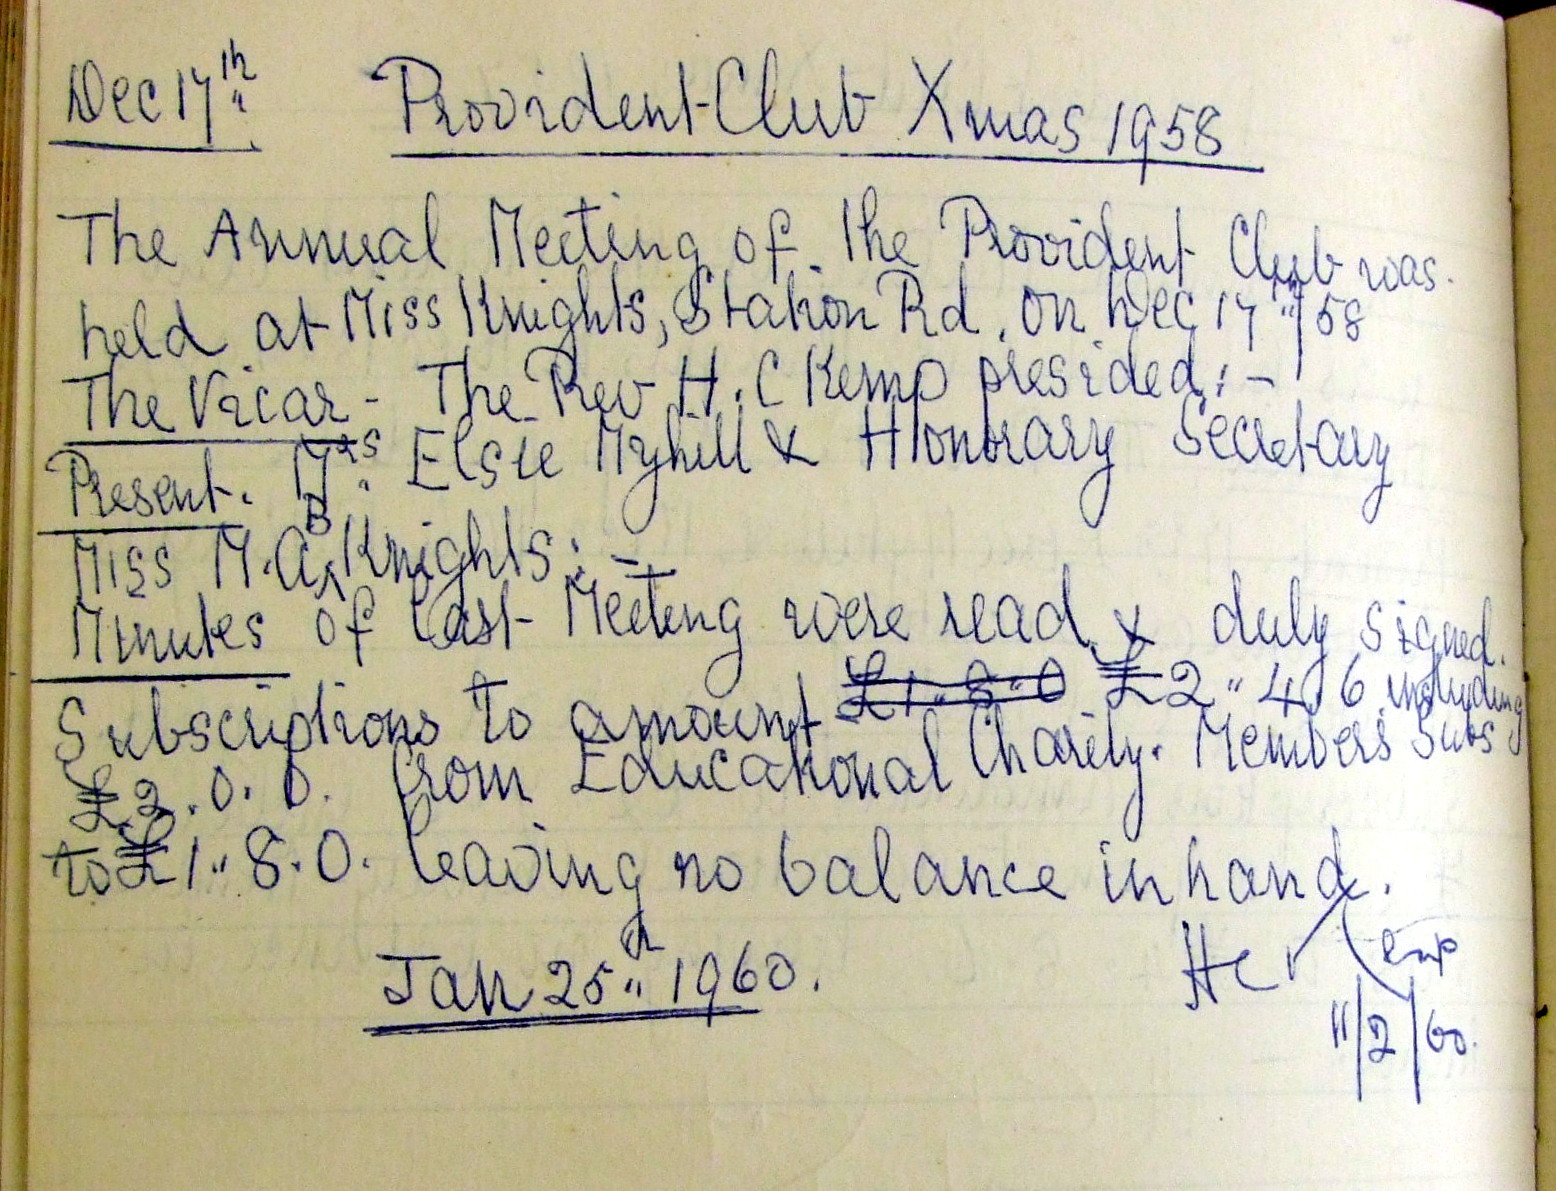 Dec 17th Provident Club Xmas 1958
The Annual Meeting of the Provident Club was.
held at Miss Knights, Station Rd. on Dec 17th/58
The Vicar - The Rev H. C Kemp presided: -
Present. Mrs. Elsie Myhill & Honorary Secretary
Miss M. A. B Knights: -
Minutes of Last Meeting were read & duly signed.
Subscriptions to amount £1.. 8.. 0 £2.. 4. 6 including
£2. 0. 0. from Educational Charity. Members Subs
to £1.. 8. 0. leaving no balance in hand.
Jan 25th 1960. HC Kemp
11/2/60.